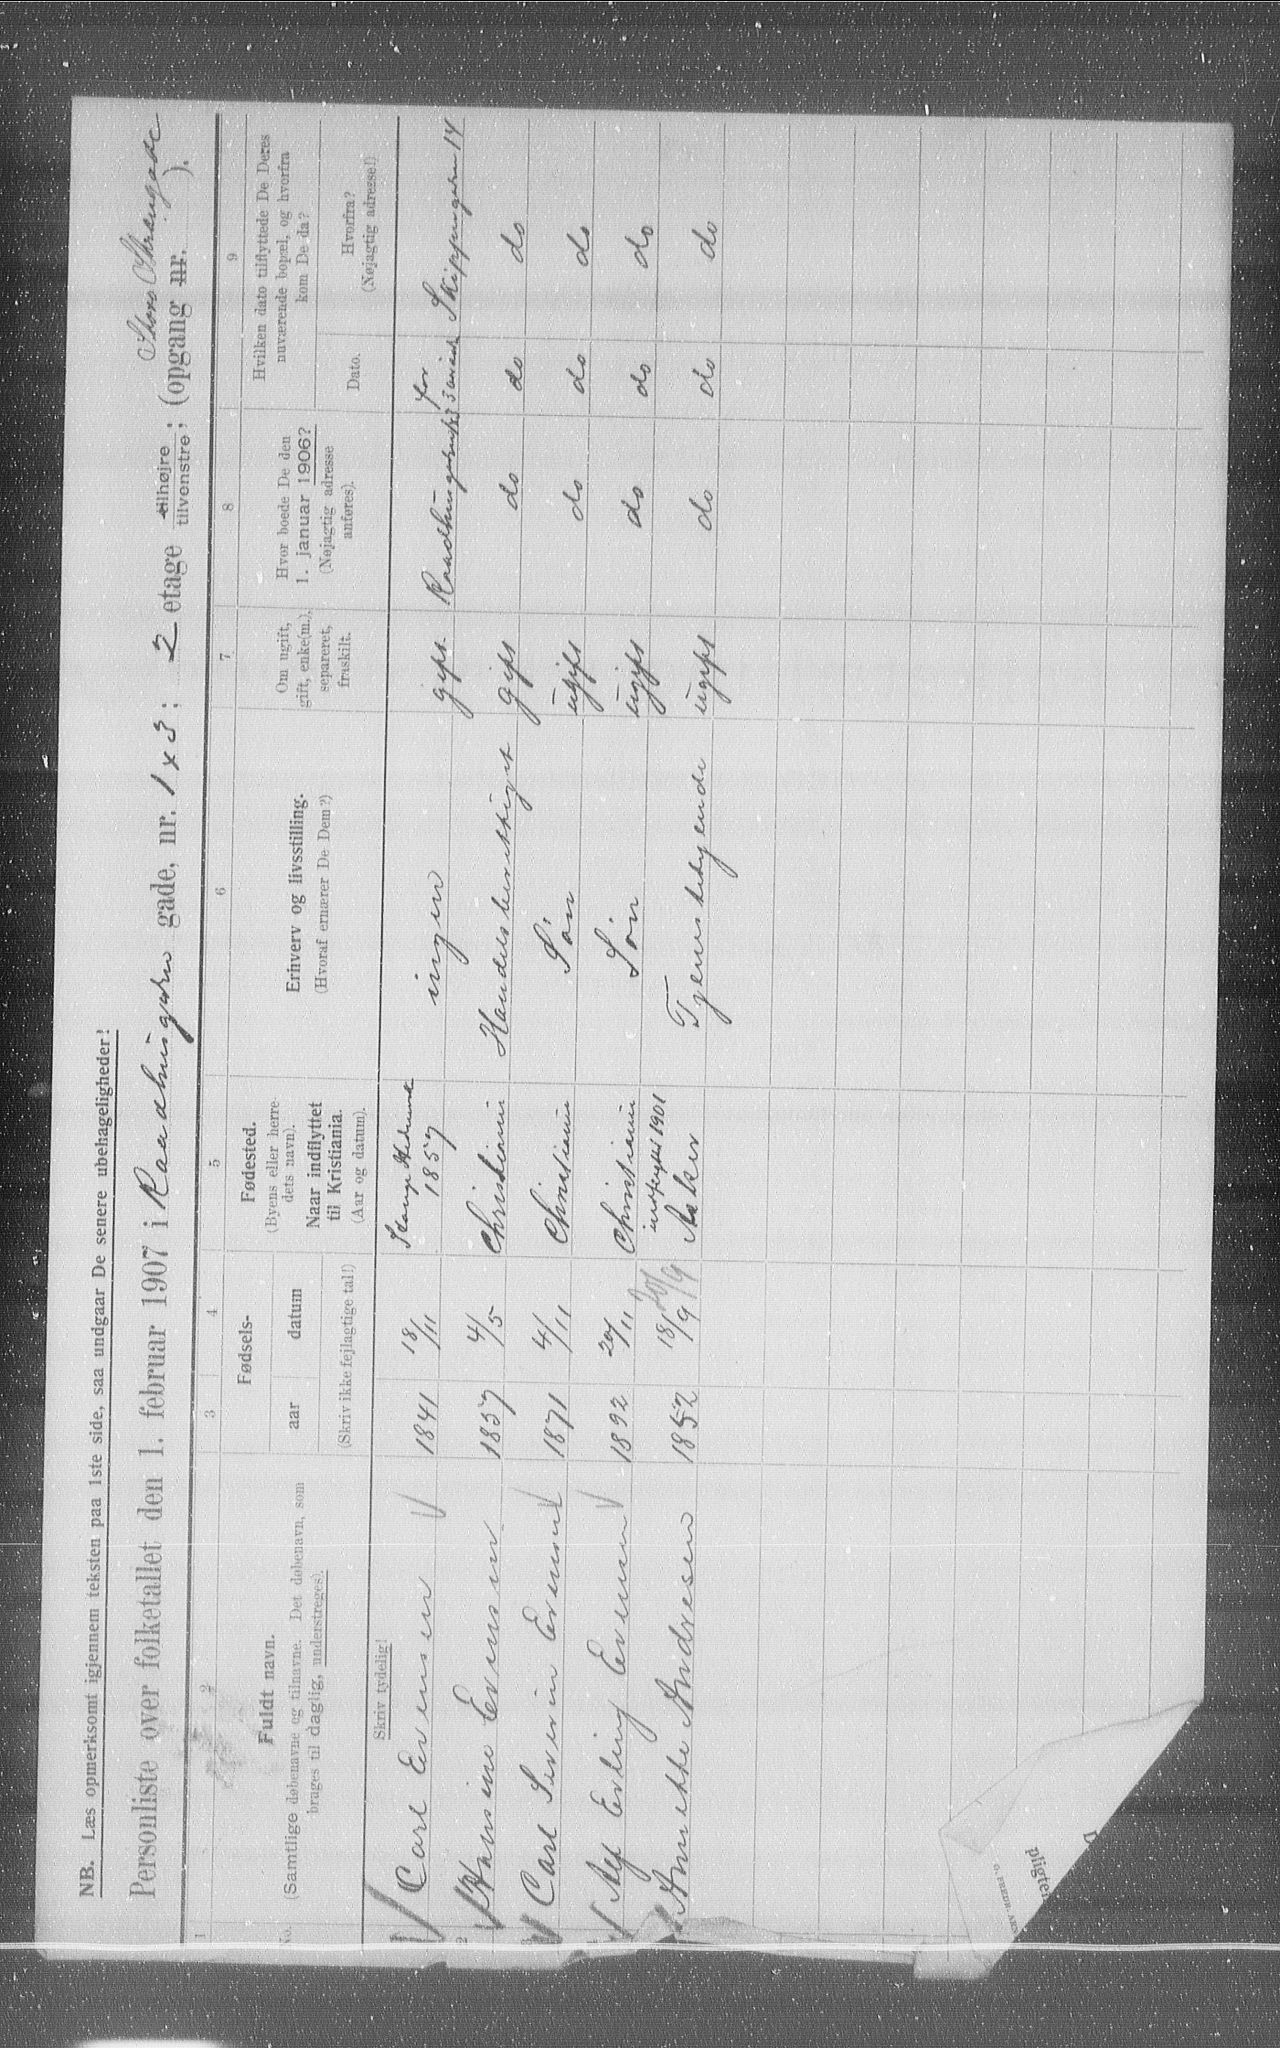 NB. Læs opmerksomt igjennem teksten paa 1ste side, saa undgaar De senere ubehageligheder!
Store Strangade
Personliste over folketallet den 1. februar 1907 i Raadhusgaden gade, nr. 1 x 3; 2 etage tilhøjre tilvenstre; (opgang nr. ).
1 2 3 4 5 6 7 8 9
No.
Fuldt navn.
(Samtlige døbenavne og tilnavne. Det døbenavn, som
bruges til daglig, understreges).
Skriv tydelig!
Fødsels-
aar datum
(Skriv ikke fejlagtige tal!)
Fødested.
(Byens eller herre-
dets navn).
Naar indflyttet
til Kristiania.
(Aar og datum).
Erhverv og livsstilling.
(Hvoraf ernærer De Dem?)
Om ugift,
gift, enke(m.),
separeret,
fraskilt.
Hvor boede De den
1. januar 1906?
(Nøjagtig adresse
anføres).
Hvilken dato tilflyttede De Deres
nuværende bopæl, og hvorfra
kom De da?
Dato.
Hvorfra?
(Nøjagtig adresse!)
Carl Evensen 1841 18/11 Stange Hedemark 1857 ingen gift Raadhusgaden for Skippergaden 14
2 Hansine Evensen 1857 4/5 Christiania Handelsberettiget gift do do do
3 Carl Severin Evensen 1871 4/11 Christiania Sön ugift do do do
Alf Erling Evensen 1892 29/11 Christiania Sön ugift do do do
Annette Andresen 1852 18/9 indflyttet 1901 Asker Tjenestepigende ugift do do do
pligtet